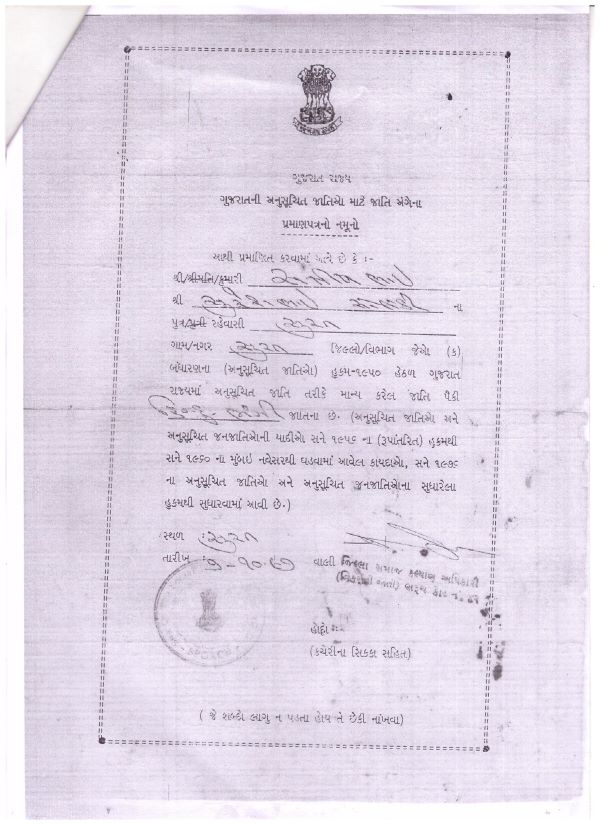 ગુજરાત રાજ્ય
ગુજરાતની અનુસૂચિત જાતિઓ માટે જાતિ અંગેના
પ્રમાણપત્રનો નમૂનો
આથી પ્રમાણિત કરવામાં આવે છે કે :-
શ્રી/શ્રીમતિ/કુમારી
શ્રી સુરેશભાઇ ના
પુત્ર/પુત્રી રહેવાસી સુરત
ગામ/નગર સુરત જિલ્લો/વિભાગ જેઓ (ક)
બંધારણના (અનુસૂચિત જાતિઓ) હુકમ-૧૯૫૦ હેઠળ ગુજરાત
રાજ્યમાં અનુસૂચિત જાતિ તરીકે માન્ય કરેલ જાતિ પૈકી
હિન્દુ જાતના છે. (અનુસૂચિત જાતિઓ અને
અનુસૂચિત જનજાતિઓની યાદીઓ સને ૧૯૫૬ ના (રૂપાંતરિત) હુકમથી
સને ૧૯૬૦ ના મુંબઇ નવેસરથી ઘડવામાં આવેલ કાયદાઓ, સને ૧૯૭૬
ના અનુસૂચિત જાતિઓ અને અનુસૂચિત જનજાતિઓના સુધારેલા
હુકમથી સુધારવામાં આવી છે.)
સ્થળ સુરત
તારીખ વાલી જિલ્લા સમાજ કલ્યાણ અધિકારી
હોદ્દો :-
(કચેરીના સિક્કા સહિત)
( જે શબ્દો લાગુ ન પડતા હોય તે છેકી નાંખવા)